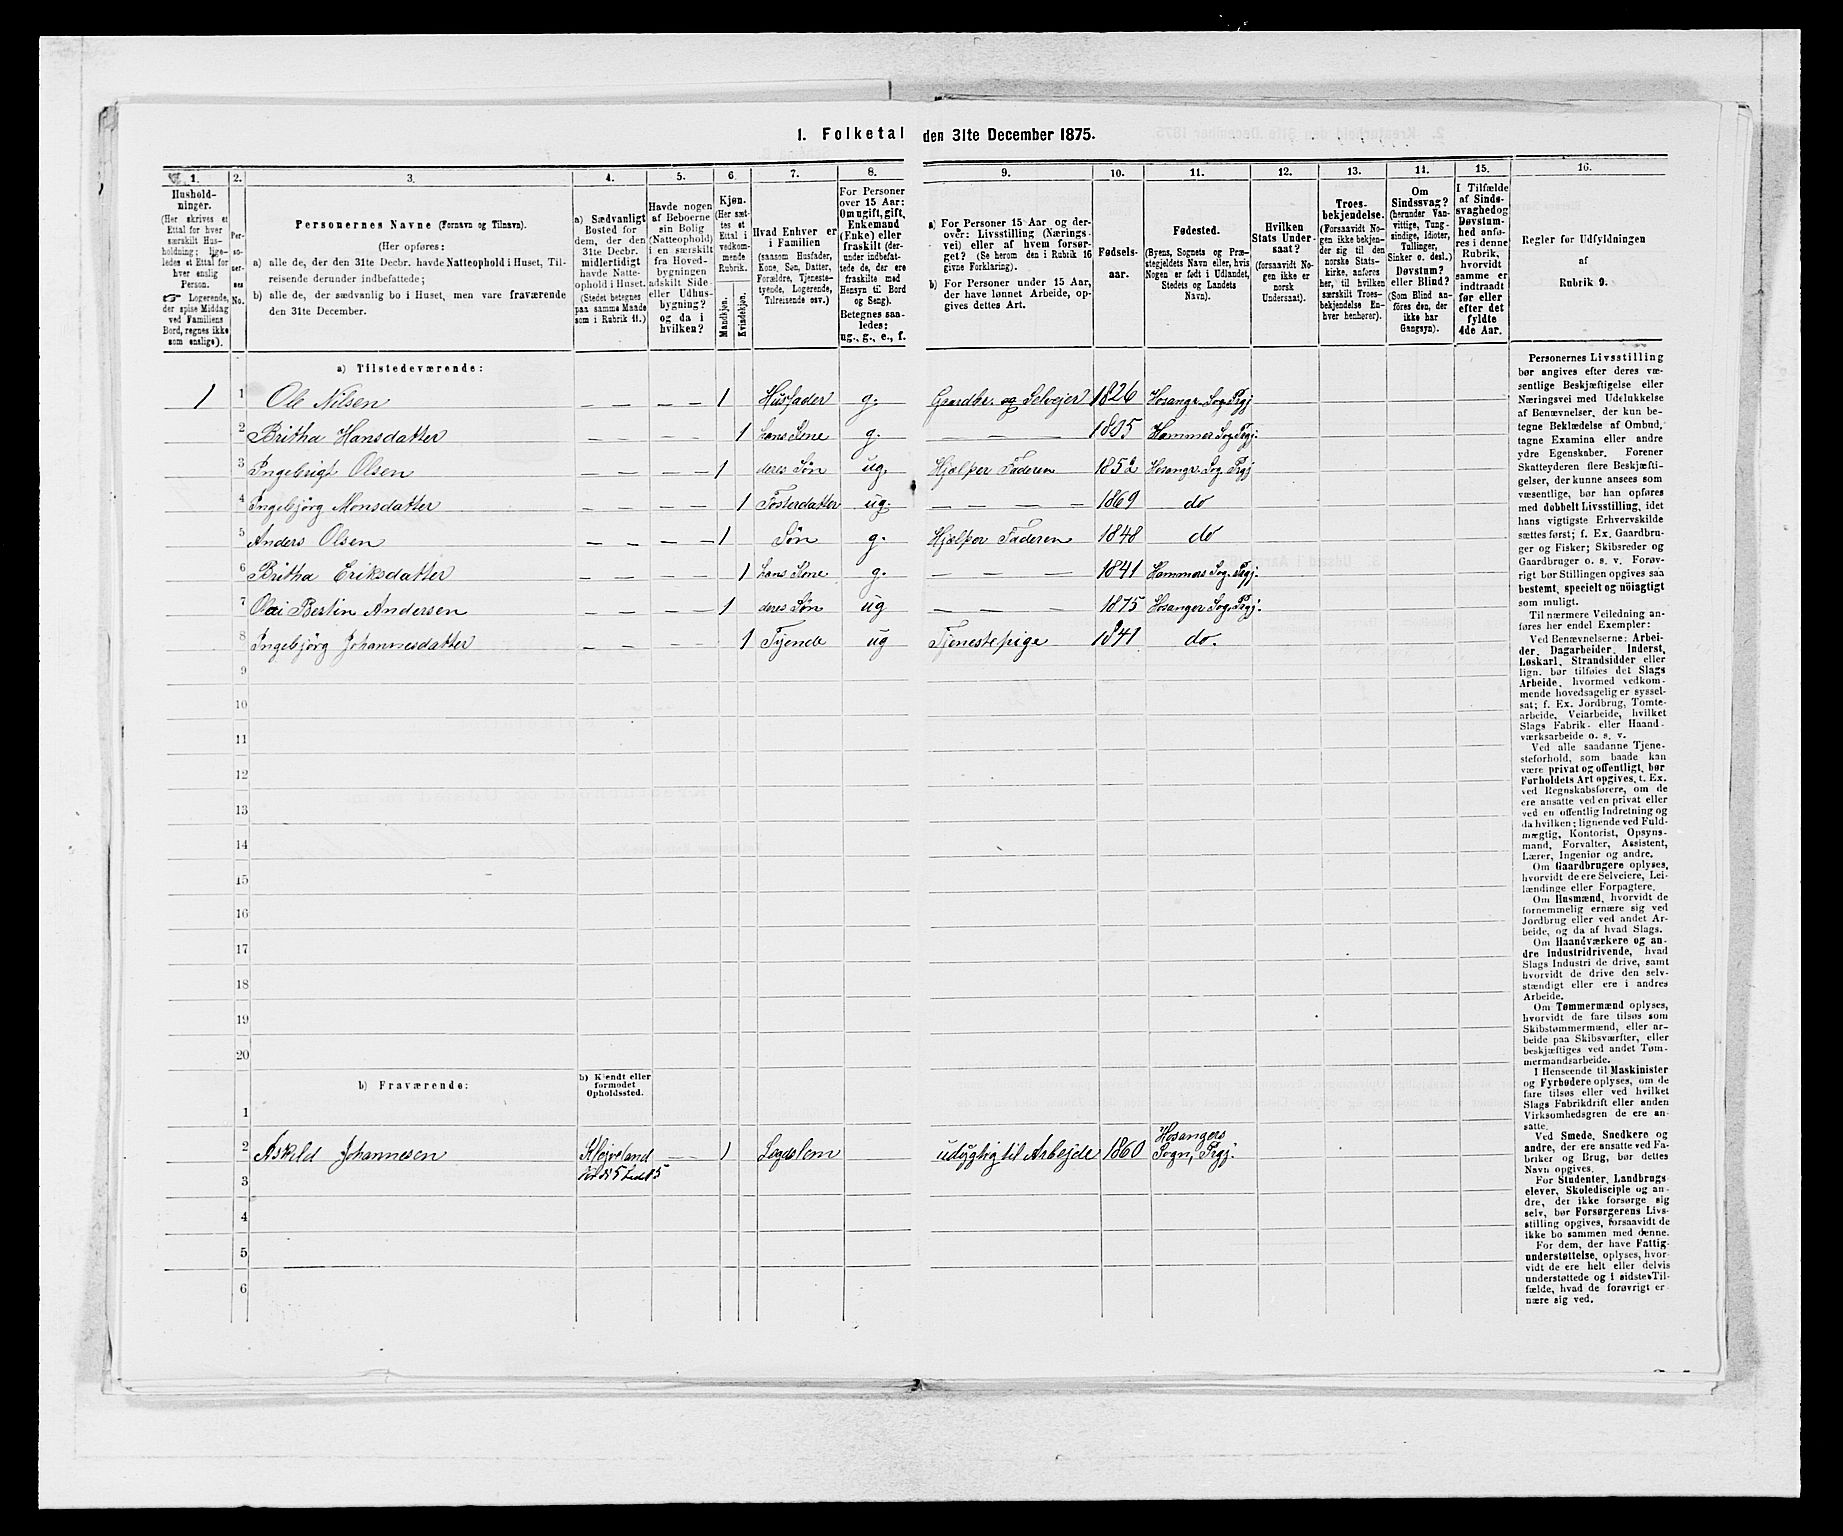 1. Folketal den 31te December 1875.
1. 2. 3. 4. 5. 6. 7. 8. 9. 10. 11. 12. 13. 14. 15. 16.
Hushold-
ninger.
(Her skrives et
Ettal for hver
særskilt Hus-
holdning; lige-
ledes et Ettal for
hver enslig
Person.
☞ Logerende,
der spise Middag
ved Familiens
Bord, regnes ikke
som enslige).
Per-
so-
ner-
nes
No.
Personernes Navne (Fornavn og Tilnavn).
(Her opføres:
a) alle de, der den 31te Decbr. havde Natteophold i Huset, Til-
reisende derunder indbefattede;
b) alle de, der sædvanlig bo i Huset, men vare fraværende
den 31te December.
a) Sædvanligt
Bosted for
dem, der den
31te Decbr.
midlertidigt
havde Natte-
ophold i Huset.
(Stedet betegnes
paa samme Maade
som i Rubrik 11.)
Havde nogen
af Beboerne
sin Bolig
(Natteophold)
i en særskilt
fra Hoved-
bygningen
adskilt Side-
eller Udhus-
bygning?
og da i
hvilken?
Kjøn.
(Her sæt-
tes et
Ettal i
vedkom-
mende
Rubrik.
Mandkjøn.
Kvindekjøn.
Hvad Enhver er
i Familien
(saasom Husfader,
Kone, Søn, Datter,
Forældre, Tjeneste-
tyende, Logerende,
Tilreisende osv.)
For Personer
over 15 Aar:
Om ugift, gift,
Enkemand
(Enke) eller
fraskilt (der-
under indbefat-
tede de, der ere
fraskilte med
Hensyn til Bord
og Seng).
Betegnes saa-
ledes:
ug., g., e., f.
a) For Personer 15 Aar og der-
over: Livsstilling (Nærings-
vei) eller af hvem forsør-
get? (Se herom den i Rubrik 16
givne Forklaring).
b) For Personer under 15 Aar,
der have lønnet Arbeide, op-
gives dettes Art.
Fødsels-
aar.
Fødested.
(Byens, Sognets og Præ-
stegjeldets Navn eller, hvis
Nogen er født i Udlandet,
Stedets og Landets
Navn).
Hvilken
Stats Under-
saat?
(forsaavidt No-
gen ikke er
norsk
Undersaat).
Troes-
bekjendelse.
(Forsaavidt No-
gen ikke bekjen-
der sig til den
norske Stats-
kirke, anføres
her, til hvilken
særskilt Troes-
bekjendelse En-
hver henhører).
Om
Sindssvag?
(herunder Van-
vittige, Tung-
sindige, Idioter,
Tullinger,
Sinker o. desl.)
Døvstum?
eller Blind?
(Som Blind an-
føres den, der
ikke har
Gangsyn).
I Tilfælde
af Sinds-
svaghed og
Døvstum-
hed anfø-
res i denne
Rubrik,
hvorvidt
samme er
indtraadt
før eller
efter det
fyldte
4de Aar.
Regler for Udfyldningen
af
Rubrik 9.
a) Tilstedeværende:
1 1 Ole Nilsen — — — 1 Husfader g. Gaardbr. og Selvejer 1826 Hosangr. Sog. Prgj
2 Britha Hansdatter — — — 1 hans Kone g. — — — 1805 Hammer Sog. Prgj:
3 Ingebrigt Olsen — — — 1 deres Søn ug. Hjælper Faderen 1852 Hosangr. Sog. Prgj
4 Ingebjörg Monsdatter — — — 1 Fosterdatter ug. — — — 1869 do
5 Anders Olsen — — — 1 Søn g. Hjælper Faderen 1848 do
6 Britha Eriksdatter — — — 1 hans Kone g. — — — 1841 Hammers Sog. Prgj:
7 Olai Bertin Andersen — — — 1 deres Søn ug — — — 1875 Hosanger Sog. Prgj:
8 Ingebjörg Johannesdatter — — — 1 Tyende ug Tjenestepige 1841 do.
9
10
11
12
13
14
15
16
17
18
19
20
b) Fraværende:
b) Kjendt eller
formodet
Opholdssted.
1
2 Askild Johannesen Kleiveland — 1 Lægdslem udygtig til Arbejde 1860 Hosangers
Sogn, Prgj:
3
4
5
6
Personernes Livsstilling
bør angives efter deres væ-
sentlige Beskjæftigelse eller
Næringsvei med Udelukkelse
af Benævnelser, der kun be-
tegne Beklædelse af Ombud,
tagne Examina eller andre
ydre Egenskaber. Forener
Skatteyderen flere Beskjæfti-
gelser, der kunne ansees som
væsentlige, bør han opføres
med dobbelt Livsstilling, idet
hans vigtigste Erhvervskilde
sættes først; f. Ex. Gaardbru-
ger og Fisker; Skibsreder og
Gaardbruger o. s. v. Forøv-
rigt bør Stillingen opgives saa
bestemt, specielt og nøiagtigt
som muligt.
Til nærmere Veiledning an-
føres her endel Exempler:
Ved Benævnelserne: Arbei-
der, Dagarbeider, Inderst,
Løskarl, Strandsidder eller
lign. bør tilføies det Slags
Arbeide, hvormed vedkom-
mende hovedsagelig er syssel-
sat; f. Ex. Jordbrug, Tomte-
arbeide, Veiarbeide, hvilket
Slags Fabrik- eller Haand-
værksarbeide o. s. v.
Ved alle saadanne Tjene-
steforhold, som baade kan
være privat og offentligt, bør
Forholdets Art opgives, t. Ex.
ved Regnskabsførere, om de
ere ansatte ved en privat eller
ved en offentlig Indretning og
da hvilken; lignende ved Fuld-
mægtig, Kontorist, Opsyns-
mand, Forvalter, Assistent,
Lærer, Ingeniør og andre.
Om Gaardbrugere oplyses,
hvorvidt de ere Selveiere, Lei-
lændinge eller Forpagtere.
Om Husmænd, hvorvidt de
fornemmelig ernære sig ved
Jordbrug eller ved andet Ar-
beide, og da af hvad Slags.
Om Haandværkere og an-
dre Industridrivende, hvad
Slags Industri de drive, samt
hvorvidt de drive den selv-
stændigt eller ere i andres
Arbeide.
Om Tømmermænd oplyses,
hvorvidt de fare tilsøs som
Skibstømmermænd, eller ar-
beide paa Skibsværfter, eller
beskjæftiges ved andet Tøm-
mermandsarbeide.
I Henseende til Maskinister
og Fyrbødere oplyses, om de
fare tilsøs eller ved hvilket
Slags Fabrikdrift eller anden
Virksomhedsgren de ere an-
satte.
Ved Smede, Snedkere og
andre, der ere ansatte ved Fa-
briker og Brug, bør dettes
Navn opgives.
For Studenter, Landbrugs-
elever, Skoledisciple og an-
dre, der ikke forsørge sig
selv, bør Forsørgerens Livs-
stilling opgives, forsaavidt de
ikke bo sammen med denne.
For dem, der have Fattig-
understøttelse, oplyses, hvor-
vidt de ere helt eller delvis
understøttede og i sidste Til-
fælde, hvad de forøvrigt er-
nære sig ved.